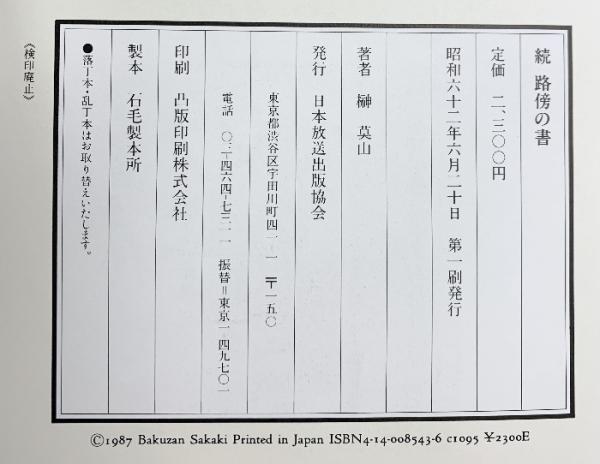 続 路傍の書
定価 二、三〇〇円
昭和六十二年六月二十日 第一刷発行
著者 榊 莫山
発行 日本放送出版協会
東京都渋谷区宇田川町四一ー一 〒一五〇
電話 〇三ー四六四ー七三一一 振替=東京一ー四九七〇一
印刷 凸版印刷株式会社
製本 石毛製本所
●落丁本・乱丁本はお取り替えいたします。
《検印廃止》
©1987 Bakuzan Sakaki Printed in Japan ISBN4-14-008543-6 C1095 ¥2300E